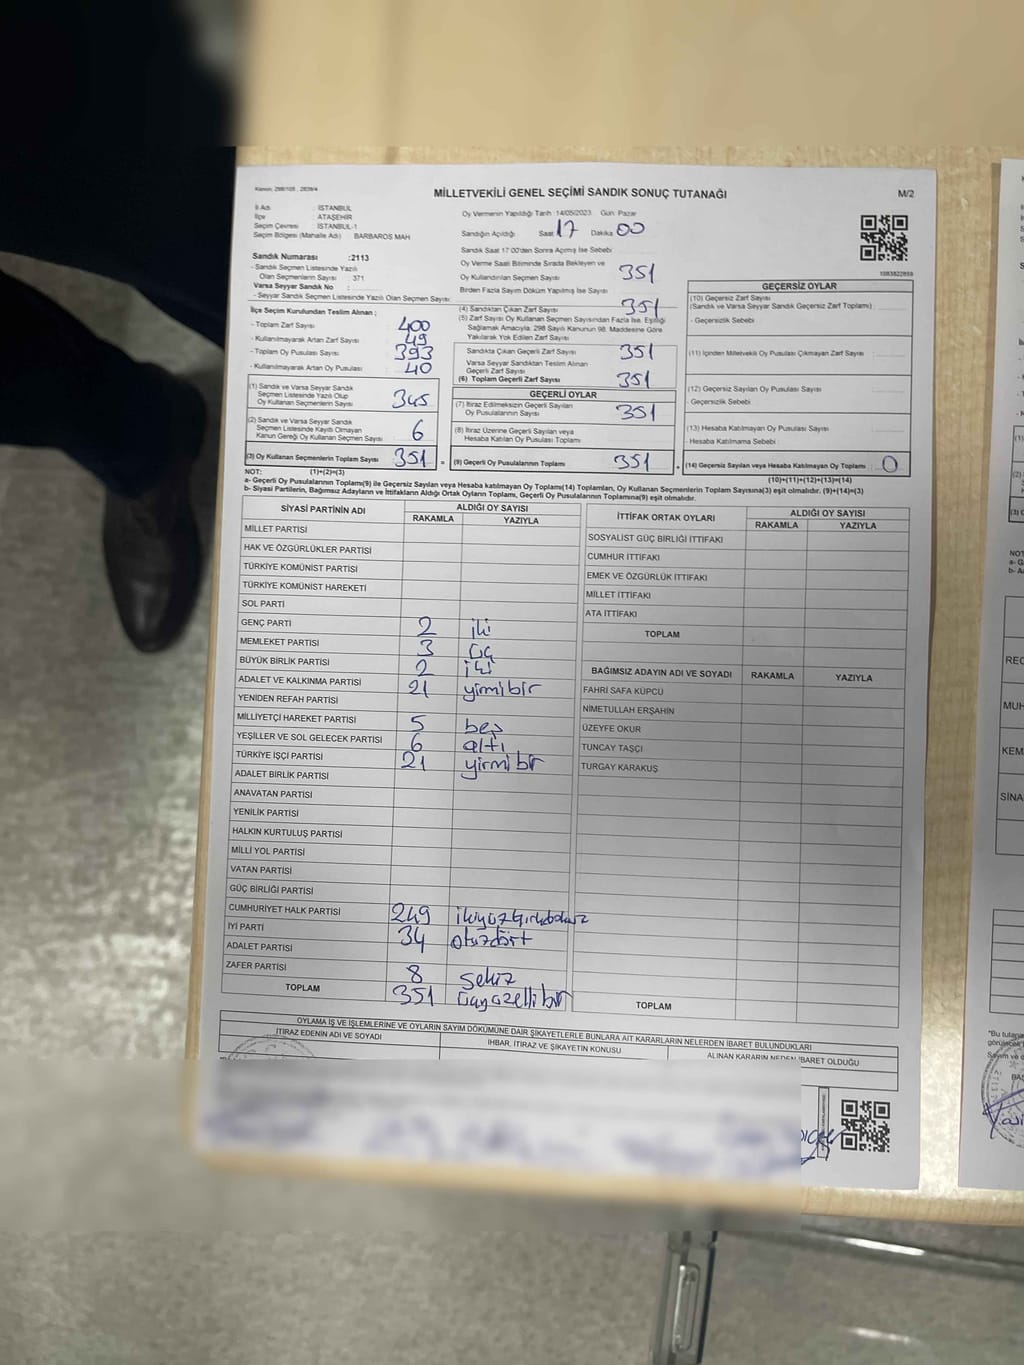 Kanun: 298/105 , 2839/4
MİLLETVEKİLİ GENEL SEÇİMİ SANDIK SONUÇ TUTANAĞI
M/2
İl Adı : İSTANBUL
İlçe : ATAŞEHİR
Seçim Çevresi : İSTANBUL-1
Seçim Bölgesi (Mahalle Adı) BARBAROS MAH
Sandık Numarası :2113
- Sandık Seçmen Listesinde Yazılı
Olan Seçmenlerin Sayısı : 371
Varsa Seyyar Sandık No :
- Seyyar Sandık Seçmen Listesinde Yazılı Olan Seçmen Sayısı:
Oy Vermenin Yapıldığı Tarih :14/05/2023 Gün: Pazar
Sandığın Açıldığı Saat 17 Dakika 00
Sandık Saat 17:00'den Sonra Açılmış İse Sebebi :
Oy Verme Saati Bitiminde Sırada Bekleyen ve
Oy Kullandırılan Seçmen Sayısı 351
Birden Fazla Sayım Döküm Yapılmış İse Sayısı
1083822859
İlçe Seçim Kurulundan Teslim Alınan ;
- Toplam Zarf Sayısı 400
- Kullanılmayarak Artan Zarf Sayısı 49
- Toplam Oy Pusulası Sayısı 393
- Kullanılmayarak Artan Oy Pusulası 40
(1) Sandık ve Varsa Seyyar Sandık
Seçmen Listesinde Yazılı Olup
Oy Kullanan Seçmenlerin Sayısı 345
(2) Sandık ve Varsa Seyyar Sandık
Seçmen Listesinde Kayıtlı Olmayan
Kanun Gereği Oy Kullanan Seçmen Sayısı 6
(3) Oy Kullanan Seçmenlerin Toplam Sayısı 351 =
(4) Sandıktan Çıkan Zarf Sayısı 351
(5) Zarf Sayısı Oy Kullanan Seçmen Sayısından Fazla İse, Eşitliği
Sağlamak Amacıyla; 298 Sayılı Kanunun 98. Maddesine Göre
Yakılarak Yok Edilen Zarf Sayısı
Sandıkta Çıkan Geçerli Zarf Sayısı 351
Varsa Seyyar Sandıktan Teslim Alınan
Geçerli Zarf Sayısı
(6) Toplam Geçerli Zarf Sayısı 351
GEÇERLİ OYLAR
(7) İtiraz Edilmeksizin Geçerli Sayılan
Oy Pusulalarının Sayısı 351
(8) İtiraz Üzerine Geçerli Sayılan veya
Hesaba Katılan Oy Pusulası Toplamı
(9) Geçerli Oy Pusulalarının Toplamı 351 +
GEÇERSİZ OYLAR
(10) Geçersiz Zarf Sayısı
(Sandık ve Varsa Seyyar Sandık Geçersiz Zarf Toplamı) :
- Geçersizlik Sebebi :
(11) İçinden Milletvekili Oy Pusulası Çıkmayan Zarf Sayısı :
(12) Geçersiz Sayılan Oy Pusulası Sayısı :
- Geçersizlik Sebebi :
(13) Hesaba Katılmayan Oy Pusulası Sayısı :
- Hesaba Katılmama Sebebi :
(14) Geçersiz Sayılan veya Hesaba Katılmayan Oy Toplamı : 0
NOT: (1)+(2)=(3)
(10)+(11)+(12)+(13)=(14)
a- Geçerli Oy Pusulalarının Toplamı(9) ile Geçersiz Sayılan veya Hesaba katılmayan Oy Toplamı(14) Toplamları, Oy Kullanan Seçmenlerin Toplam Sayısına(3) eşit olmalıdır. (9)+(14)=(3)
b- Siyasi Partilerin, Bağımsız Adayların ve İttifakların Aldığı Ortak Oyların Toplamı, Geçerli Oy Pusulalarının Toplamına(9) eşit olmalıdır.
SİYASİ PARTİNİN ADI ALDIĞI OY SAYISI
RAKAMLA YAZIYLA
MİLLET PARTİSİ
HAK VE ÖZGÜRLÜKLER PARTİSİ
TÜRKİYE KOMÜNİST PARTİSİ
TÜRKİYE KOMÜNİST HAREKETİ
SOL PARTİ
GENÇ PARTİ 2 iki
MEMLEKET PARTİSİ 3 üç
BÜYÜK BİRLİK PARTİSİ 2 iki
ADALET VE KALKINMA PARTİSİ 21 yirmibir
YENİDEN REFAH PARTİSİ
MİLLİYETÇİ HAREKET PARTİSİ 5 beş
YEŞİLLER VE SOL GELECEK PARTİSİ 6 altı
TÜRKİYE İŞÇİ PARTİSİ 21 yirmi bir
ADALET BİRLİK PARTİSİ
ANAVATAN PARTİSİ
YENİLİK PARTİSİ
HALKIN KURTULUŞ PARTİSİ
MİLLİ YOL PARTİSİ
VATAN PARTİSİ
GÜÇ BİRLİĞİ PARTİSİ
CUMHURİYET HALK PARTİSİ 249 ikiyüzkırkdokuz
İYİ PARTİ 34 otuzdört
ADALET PARTİSİ
ZAFER PARTİSİ 8 sekiz
TOPLAM 351 üçyüzellibir
İTTİFAK ORTAK OYLARI ALDIĞI OY SAYISI
RAKAMLA YAZIYLA
SOSYALİST GÜÇ BİRLİĞİ İTTİFAKI
CUMHUR İTTİFAKI
EMEK VE ÖZGÜRLÜK İTTİFAKI
MİLLET İTTİFAKI
ATA İTTİFAKI
TOPLAM
BAĞIMSIZ ADAYIN ADI VE SOYADI RAKAMLA YAZIYLA
FAHRİ SAFA KÜPCÜ
NİMETULLAH ERŞAHİN
ÜZEYFE OKUR
TUNCAY TAŞÇI
TURGAY KARAKUŞ
TOPLAM
OYLAMA İŞ VE İŞLEMLERİNE VE OYLARIN SAYIM DÖKÜMÜNE DAİR ŞİKAYETLERLE BUNLARA AİT KARARLARIN NELERDEN İBARET BULUNDUKLARI
İTİRAZ EDENİN ADI VE SOYADI İHBAR, İTİRAZ VE ŞİKAYETİN KONUSU ALINAN KARARIN NEDEN İBARET OLDUĞU
NOT
REC
MUH
KEM
SİNA
*Bu tutana